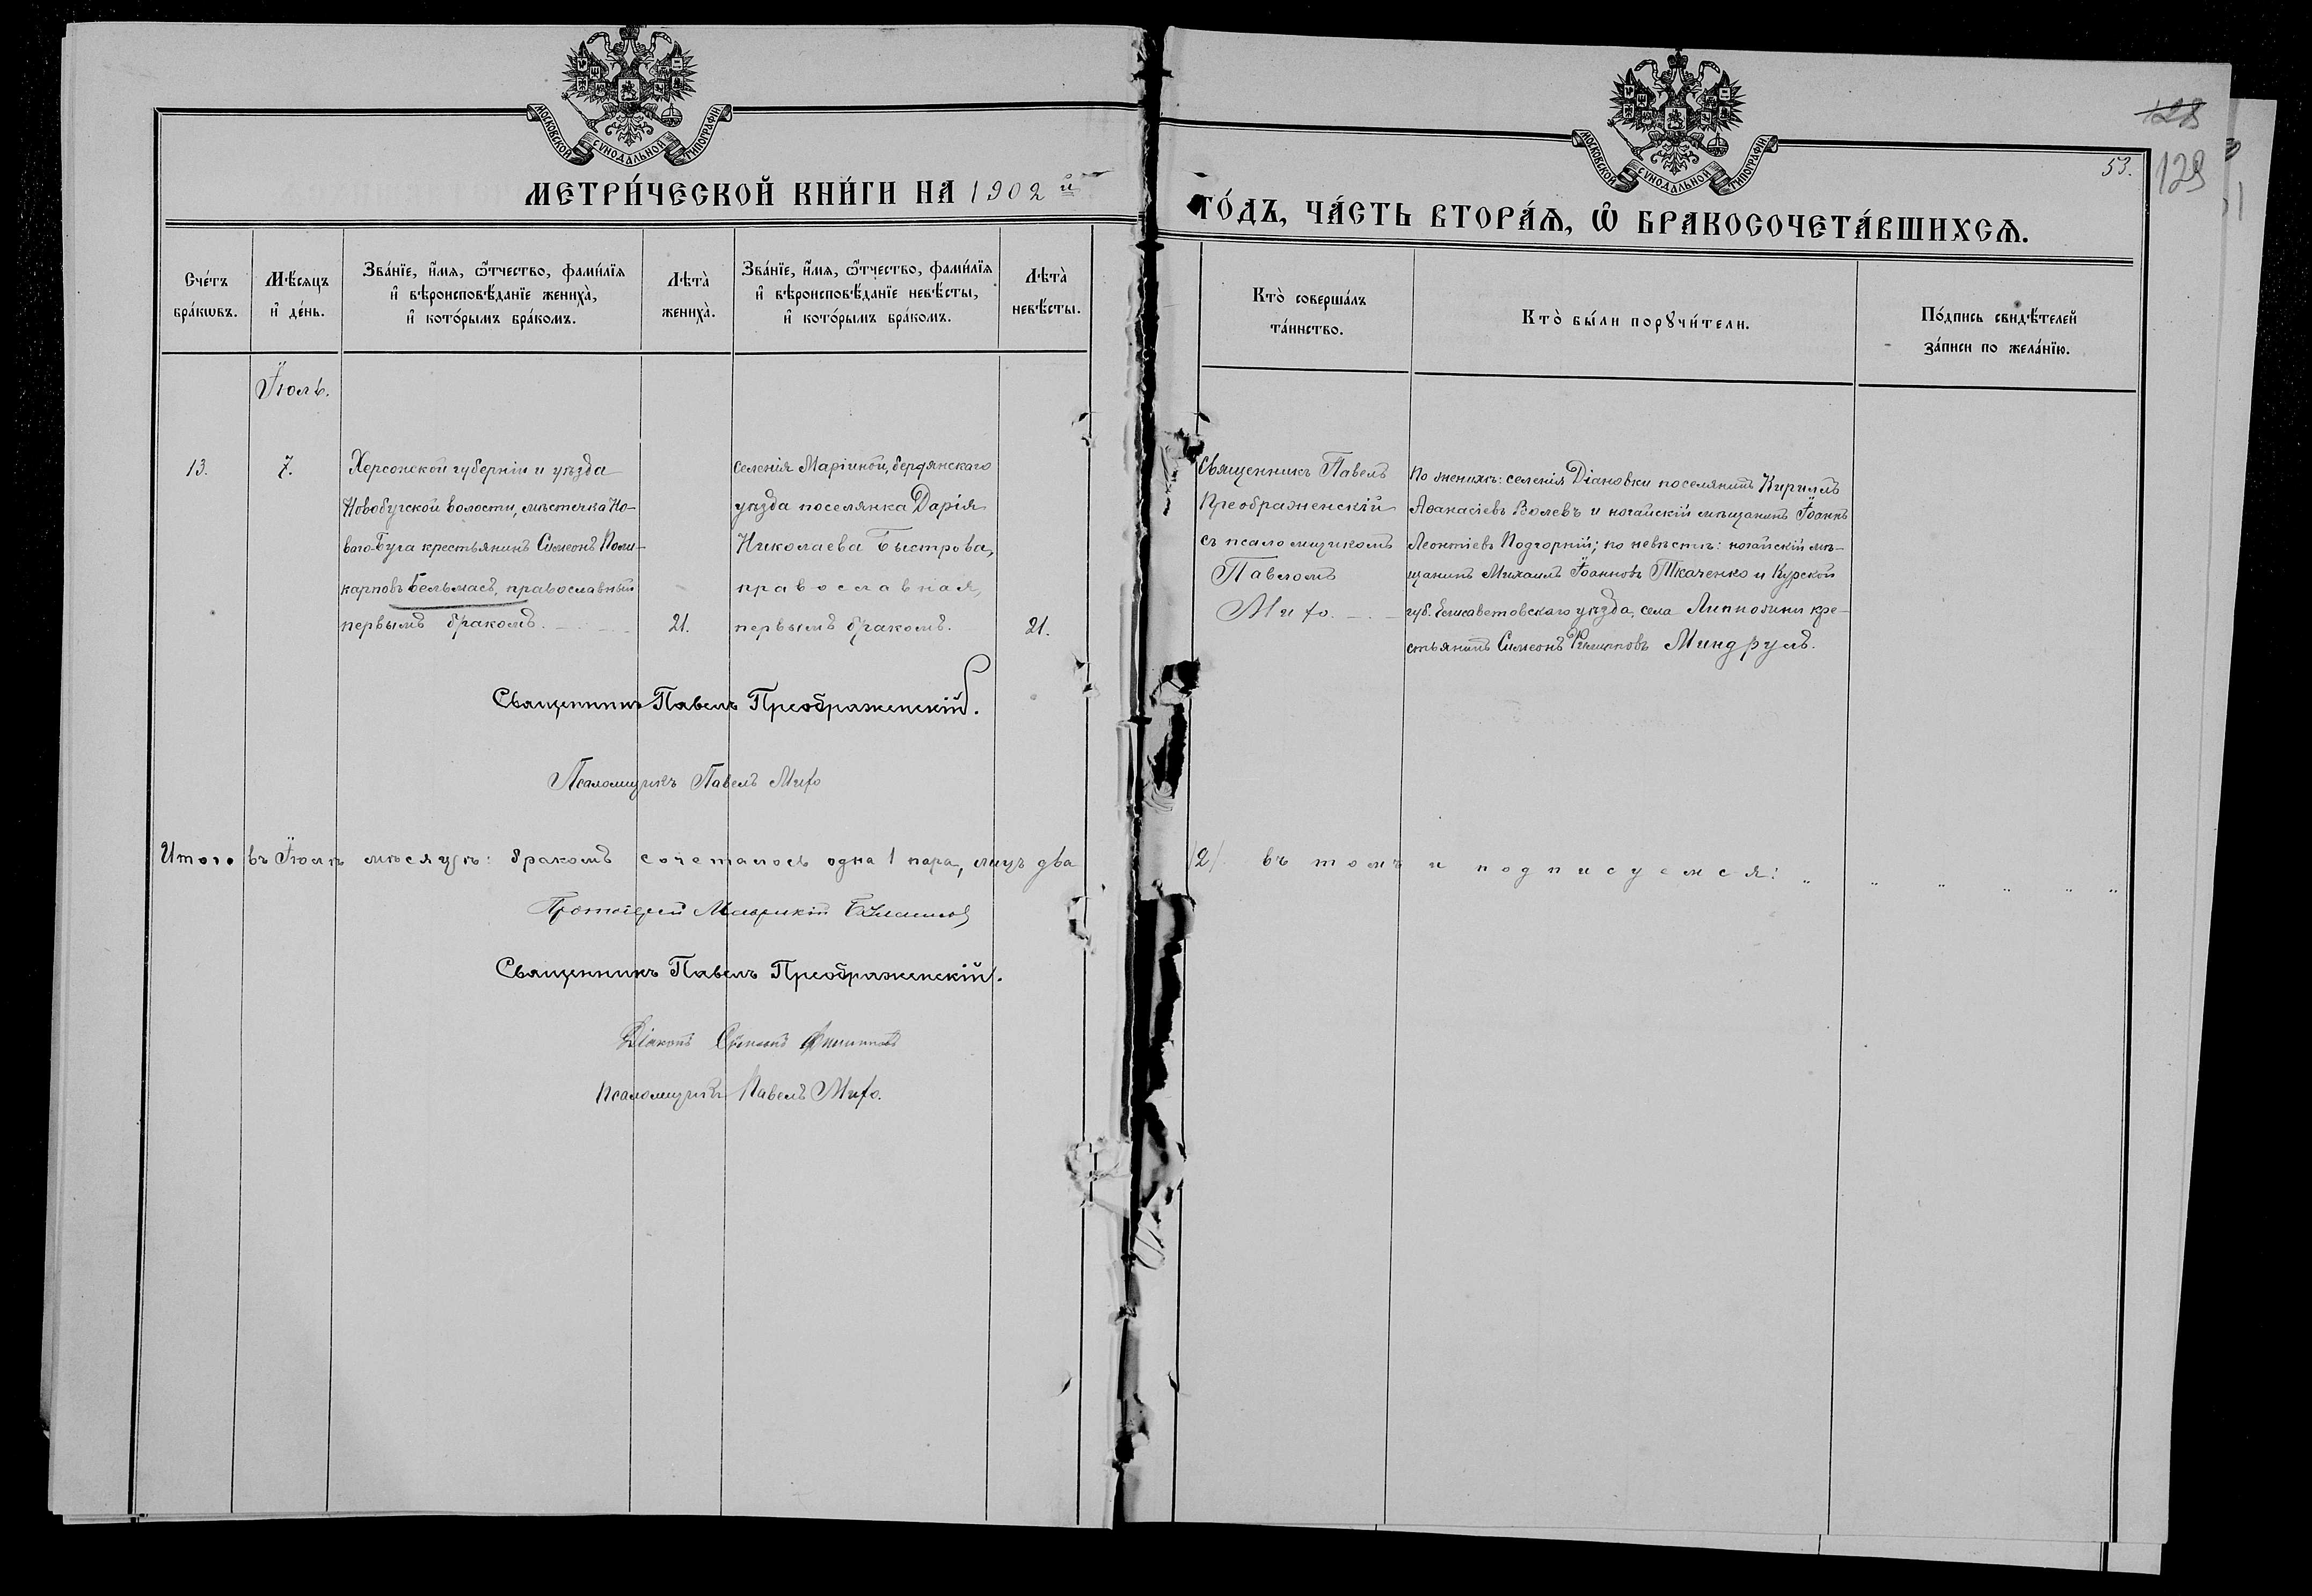 МОСКОВСКОЙ СУНОДАЛЬНОЙ ТИПОГРАФІИ
МОСКОВСКОЙ СУНОДАЛЬНОЙ ТИПОГРАФІИ
128
53.
129
МЕТРИ́ЧЕСКОЙ КНИ́ГИ НА 1902й
ГО́ДЪ, ЧА́СТЬ ВТОРА́Ѧ, Ѽ БРАКОСОЧЕТА́ВШИХСѦ.
Сче́тъ
бра́кѡвъ.
Мѣ́сѧцъ
и҆ де́нь.
Зва́нїе, и҆́мѧ, ѻ҆́тчество, фами́лїѧ
и҆ вѣроисповѣ́данїе жениха̀,
и҆ кото́рымъ бра́комъ.
Лѣта̀
жениха̀.
Зва́нїе, и҆́мѧ, ѻ҆́тчество, фами́лїѧ
и҆ вѣроисповѣ́данїе невѣ́сты,
и҆ кото́рымъ бра́комъ.
Лѣта̀
невѣ́сты.
Кто̀ соверша́лъ
та́инство.
Кто̀ бы́ли порꙋчи́тели.
По́дпись свидѣ́телей
за́писи по жела́нїю.
Іюль.
13.
7.
Херсонской губерніи и уѣзда
Новобугской волости, мѣстечка Но-
ваго-Буга крестьянинъ Симеонъ Поли-
карповъ Бельмасъ, православный
первымъ бракомъ.
21.
селенія Маріиной, бердянскаго
уѣзда поселянка Дарія
Николаева Быстрова,
православная,
первымъ бракомъ.
21.
Священникъ Павелъ
Преображенскій
съ псаломщикомъ
Павломъ
Мифо.
По женихѣ: селенія Діановки поселянинъ Кириллъ
Аѳанасіевъ Волевъ и ногайскій мѣщанинъ Іоаннъ
Леонтіевъ Подгорній; по невѣстѣ: ногайскій мѣ-
щанинъ Михаилъ Іоанновъ Ткаченко и Курской
губ. Елисаветовскаго уѣзда, села кре-
стьянинъ Симеонъ Филипповъ Миндрулъ.
Священникъ Павелъ Преображенскій.
Псаломщикъ Павелъ Мифо
Итого въ Іюлѣ мѣсяцѣ: бракомъ сочеталось одна 1 пара, лицъ два
/2/ въ томъ и подписуемся: „ „ „ „ „ „
Протоіерей Маврикій
Священникъ Павелъ Преображенскій.
Діаконъ Симеонъ
Псаломщикъ Павелъ Мифо.